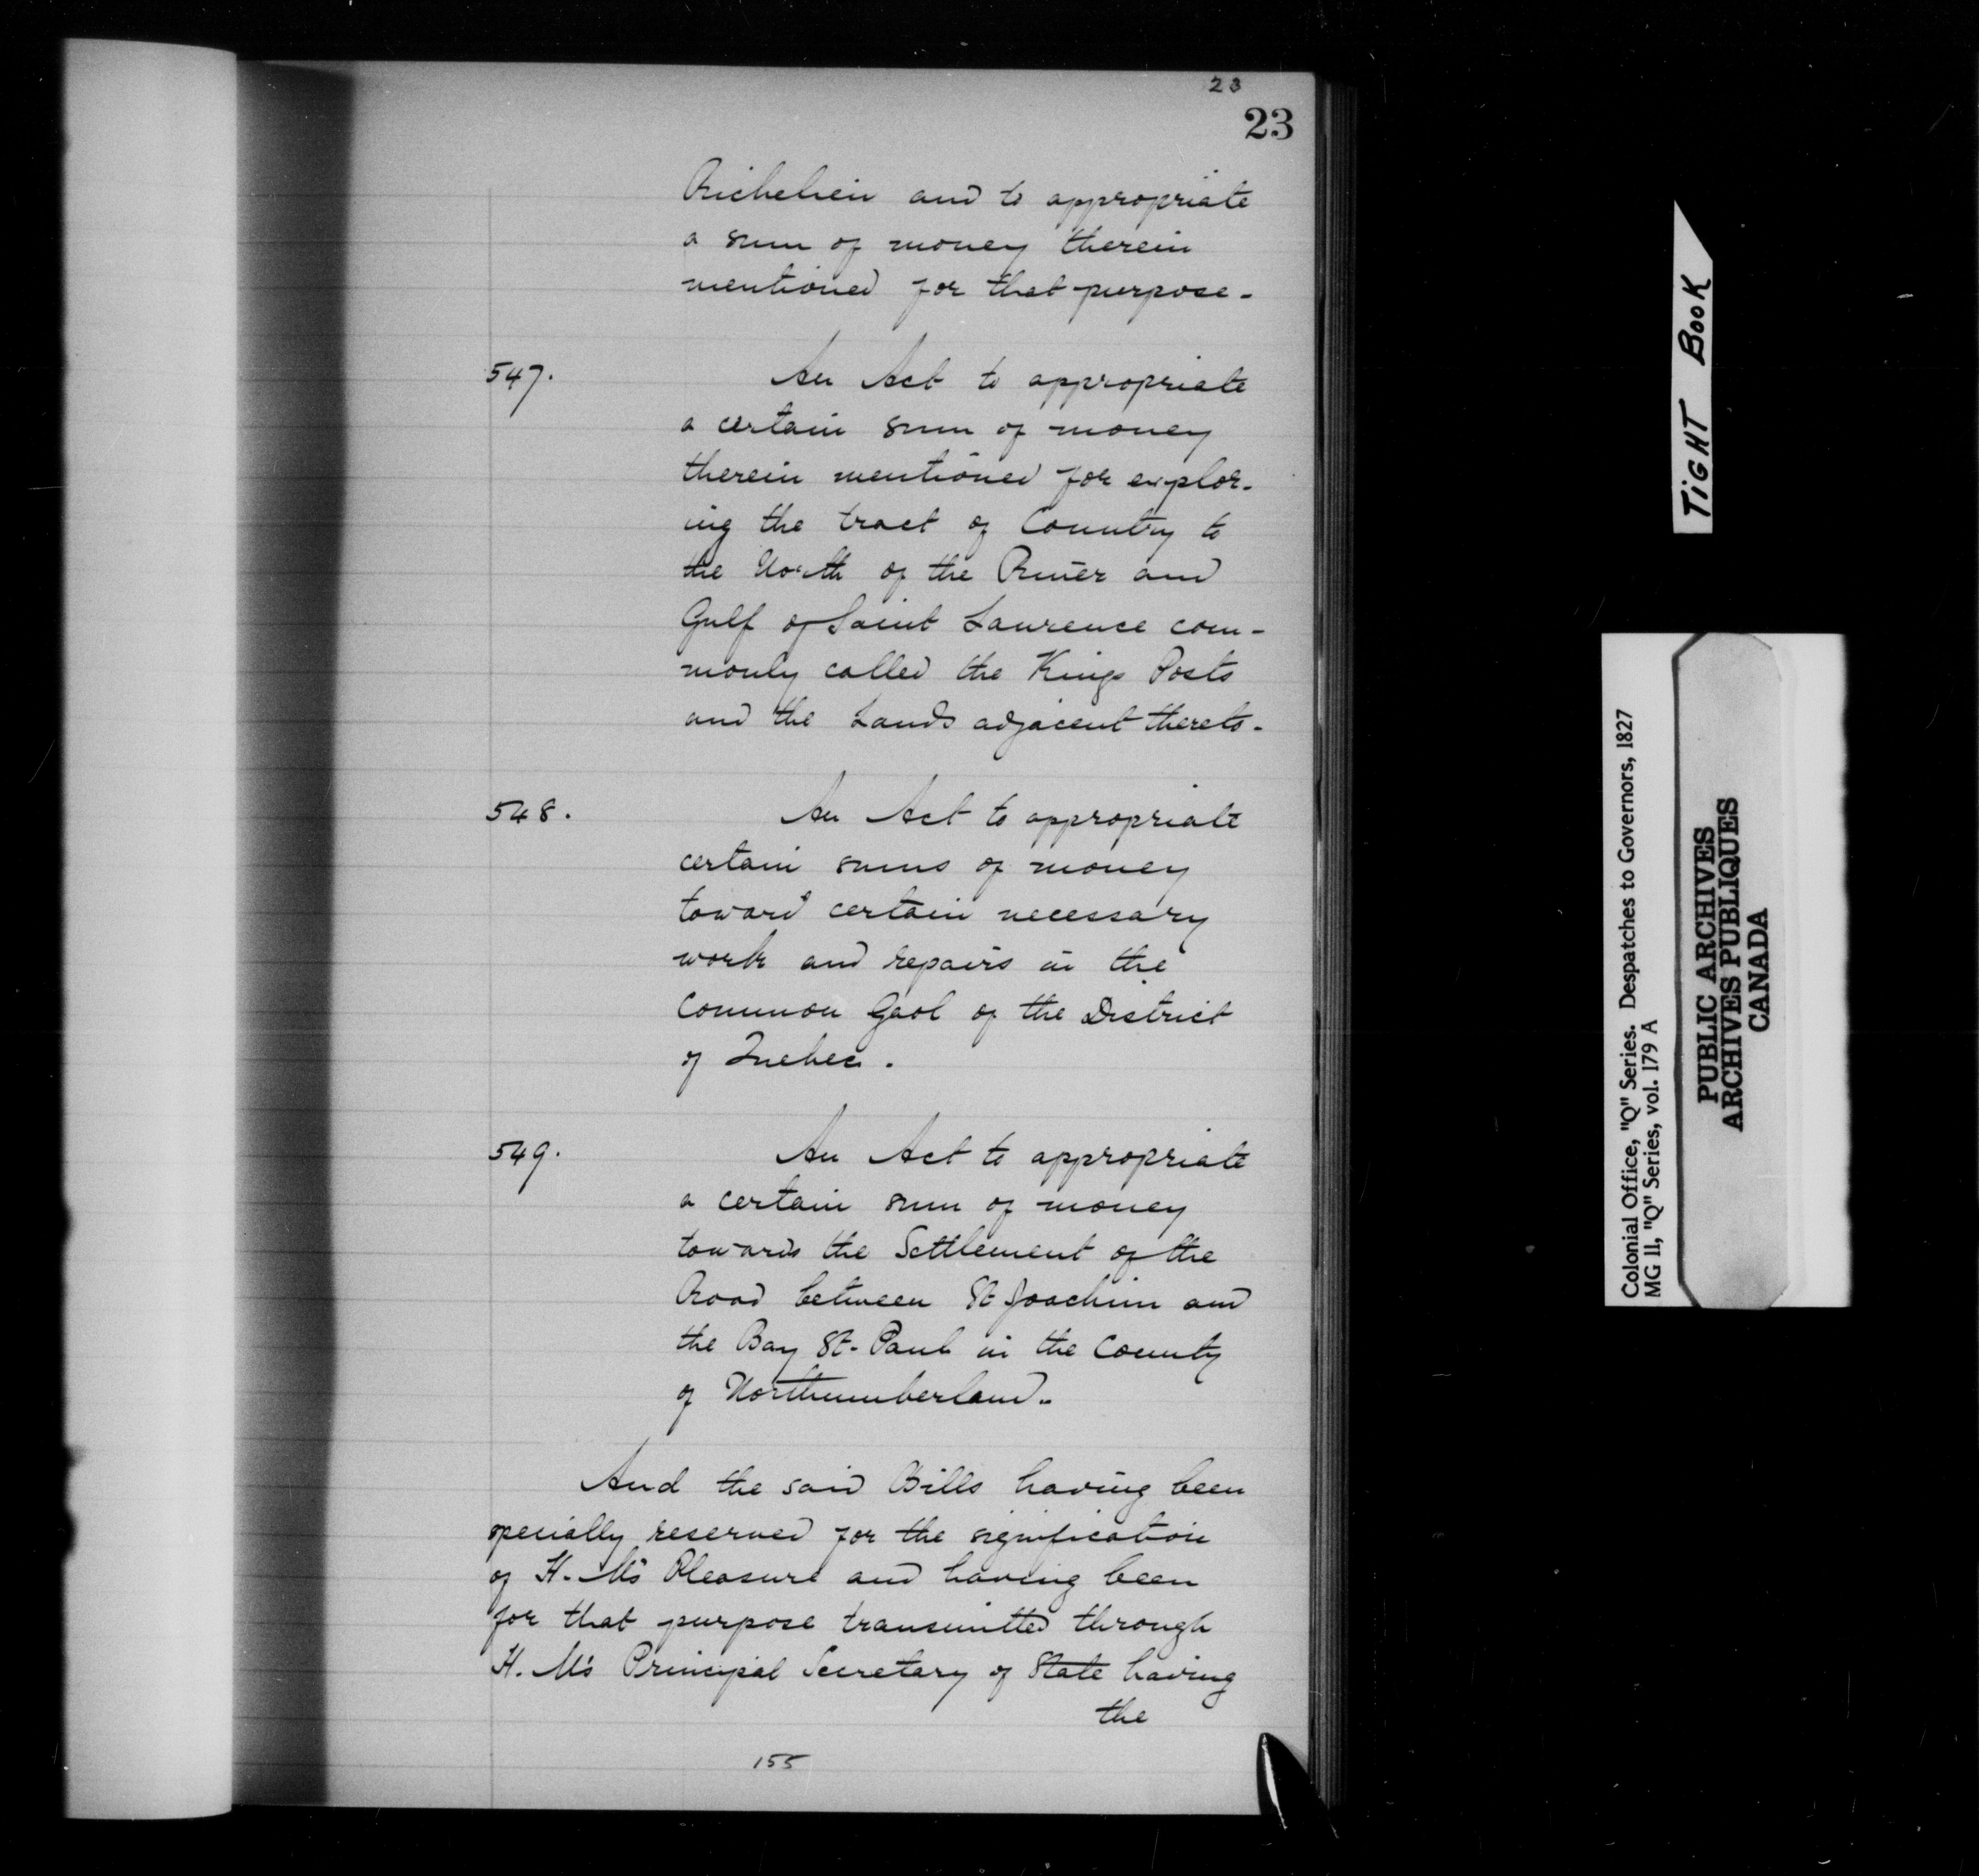 23
23
Richelieu and to appropriate
a sum of money therein
mentioned for that purpose -
547. An Act to appropriate
a certain sum of money
therein mentioned for explor-
ing the tract of Country to
the North of the River and
Gulf of Saint Lawrence com-
monly called the Kings Posts
and the Lands adjacent thereto -
548. An Act to appropriate
certain sums of money
toward certain necessary
work and repairs in the
Common Gaol of the District
of Quebec.
549. An Act to appropriate
a certain sum of money
towards the Settlement of the
Road between St Joachim and
the Bay St. Paul in the County
of Northumberland -
And the said Bills having been
specially reserved for the signification
of H. M's Pleasure and having been
for that purpose transmitted through
H. M's Principal Secretary of State having
the
155
TIGHT BOOK
Colonial Office, "Q" Series. Despatches to Governors, 1827
MG 11, "Q" Series, vol. 179 A
PUBLIC ARCHIVES
ARCHIVES PUBLIQUES
CANADA